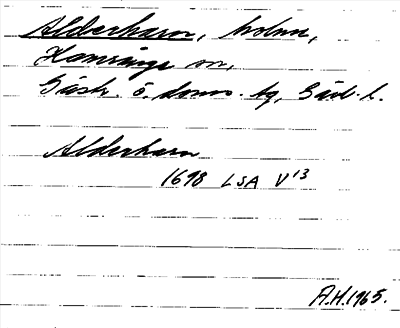 Alderharn, holme,
Hamrånge sn,
Gästr. ö. doms. tg, Gävl. l.
Alderharn
1698 LSA V¹³
A.H. 1965.